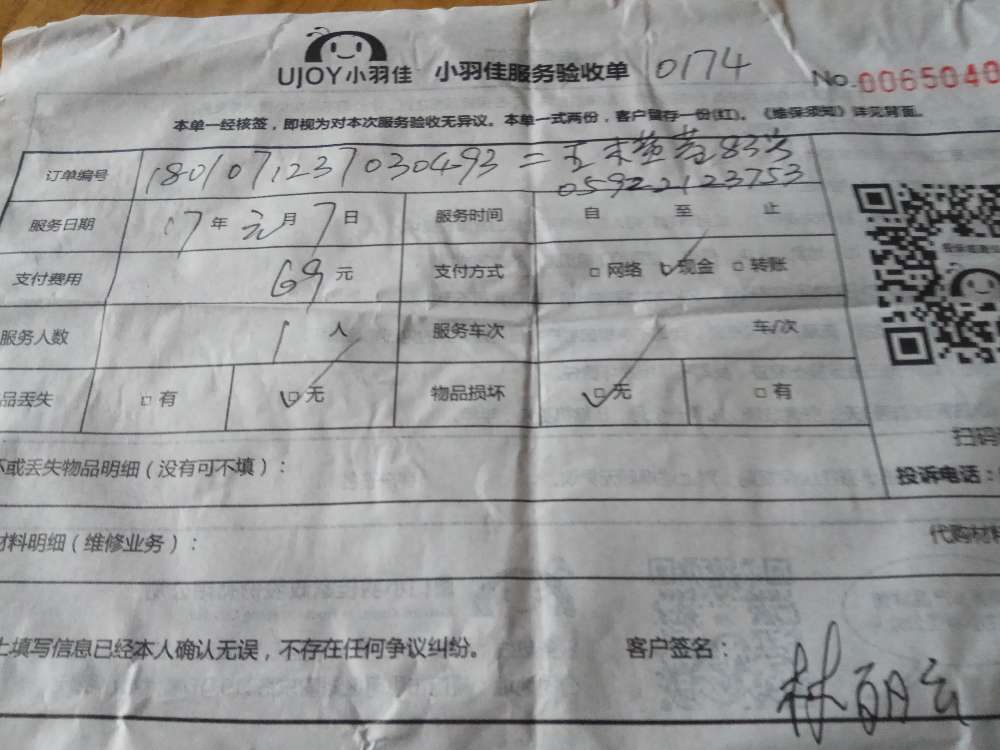 UJOY小羽佳 小羽佳服务验收单 0174 No.0065040
本单一经核签，即视为对本次服务验收无异议。本单一式两份，客户留存一份(红)。《维保须知》详见背面。
订单编号 1801071237030493 = 83号
05922123753
服务日期 17年元月7日 服务时间 自 至 止
支付费用 69元 支付方式 □网络 ☑现金 □转账
服务人数 1人 服务车次 车/次
品丢失 □有 ☑无 物品损坏 ☑无 □有
扫码
或丢失物品明细（没有可不填）： 投诉电话：
材料明细（维修业务）： 代购材料
上填写信息已经本人确认无误，不存在任何争议纠纷。 客户签名：
林丽云